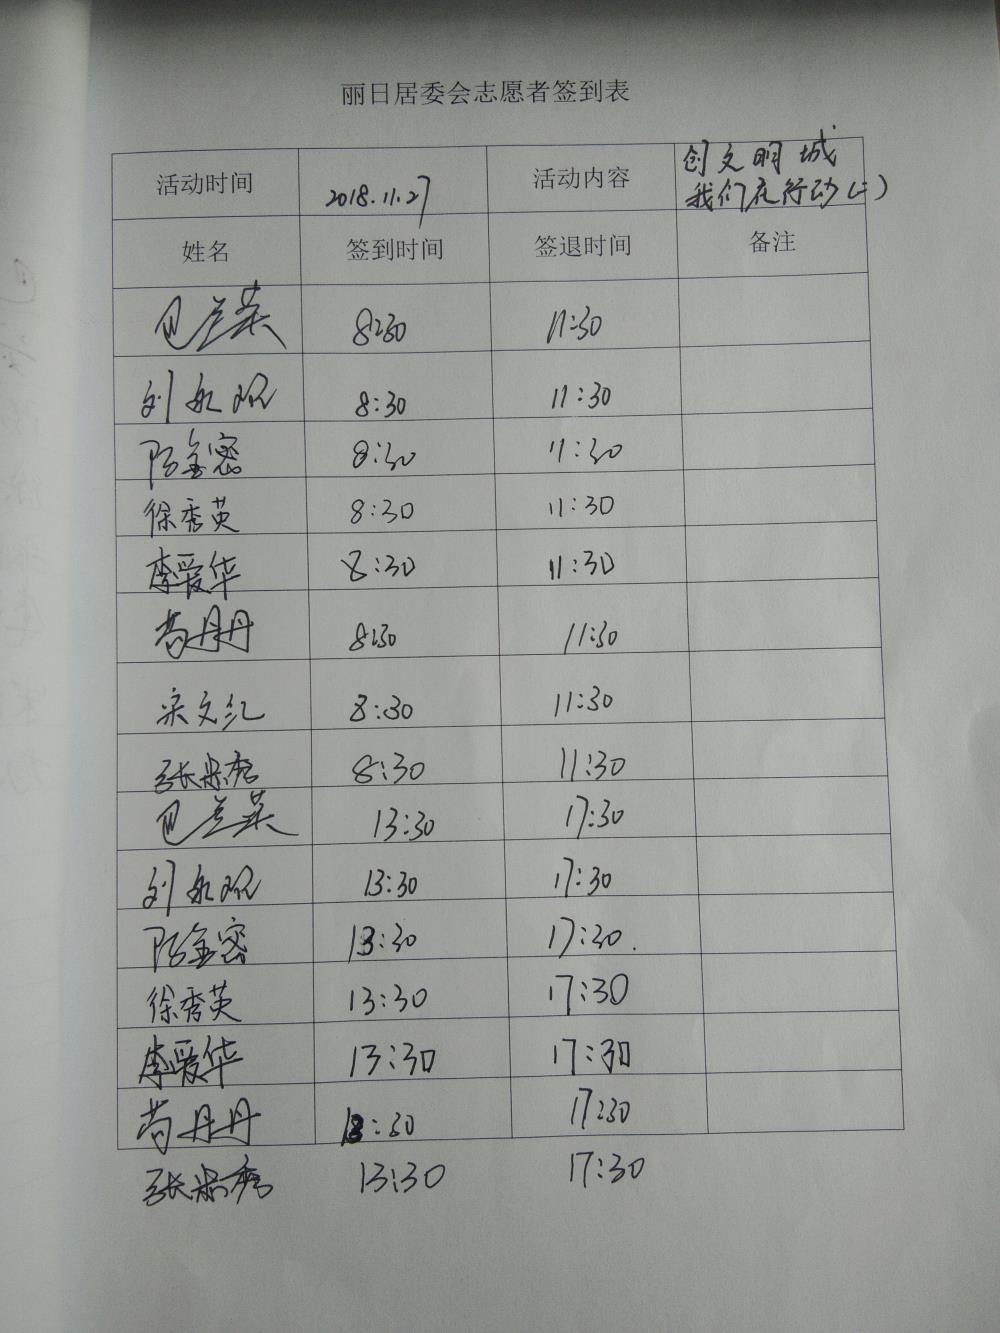 丽日居委会志愿者签到表
活动时间 2018.11.27 活动内容 创文明城
我们在行动(二)
姓名 签到时间 签退时间 备注
巴兰英 8:30 11:30
刘永观 8:30 11:30
陈金密 8:30 11:30
徐秀英 8:30 11:30
李爱华 8:30 11:30
苟丹丹 8:30 11:30
宋文红 8:30 11:30
张 8:30 11:30
巴兰英 13:30 17:30
刘永观 13:30 17:30
陈金密 13:30 17:30.
徐秀英 13:30 17:30
李爱华 13:30 17:30
苟丹丹 13:30 17:30
张 13:30 17:30